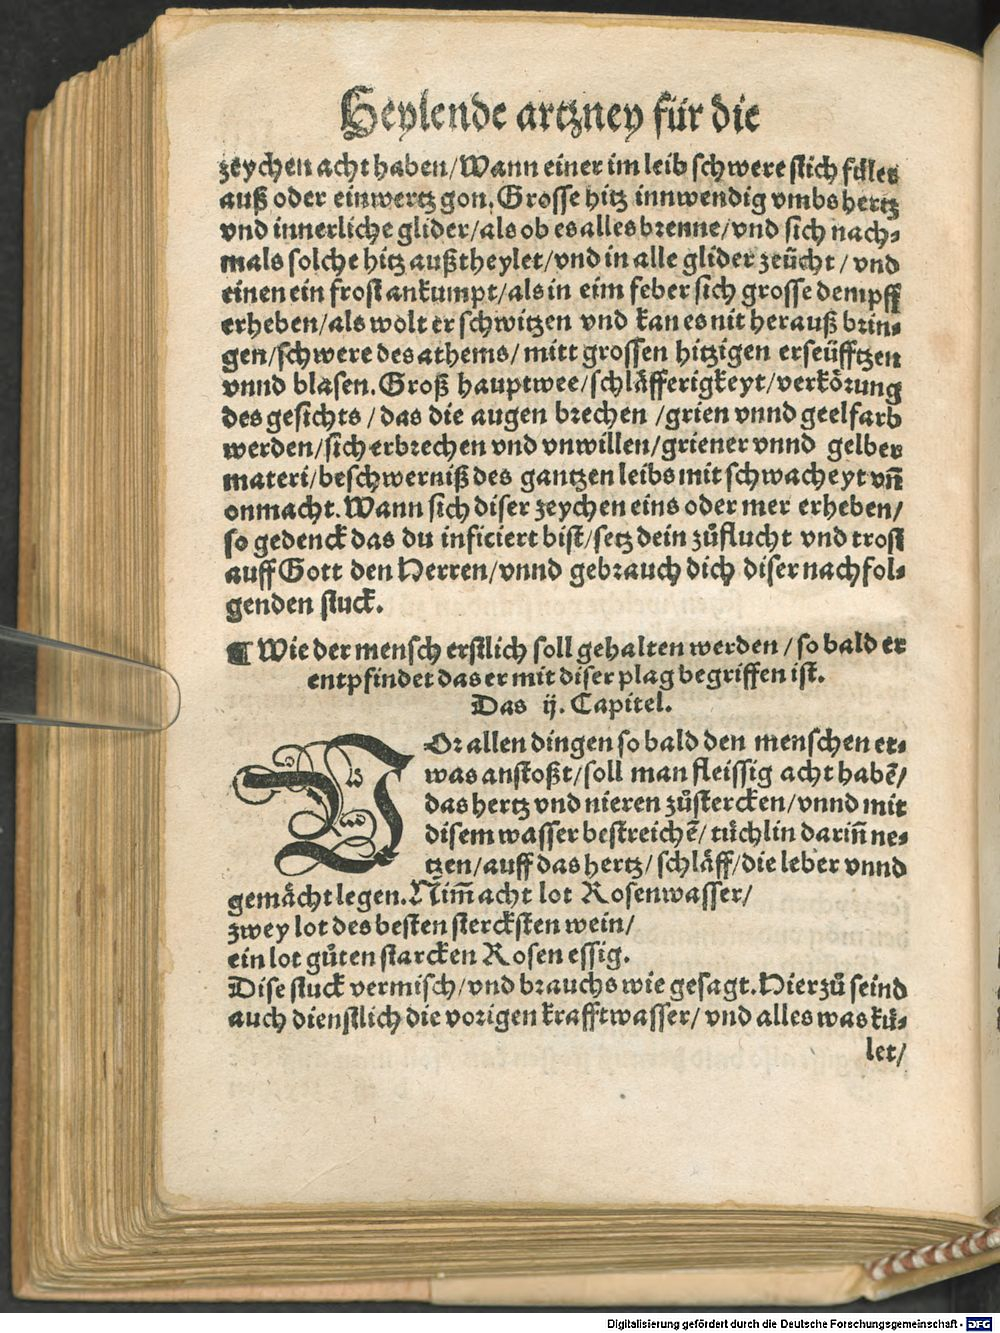 Heylende artzney für die
zeychen acht haben/Wann einer im leib schwere stich fület
auß oder einwertz gon. Grosse hitz innwendig vmbs hertz
vnd innerliche glider/als ob es alles brenne/vnd sich nach⸗
mals solche hitz außtheylet/vnd in alle glider zeücht/vnd
einen ein frost ankumpt/als in eim feber sich grosse dempff
erheben/als wolt er schwitzen vnd kan es nit herauß brin⸗
gen/schwere des athems/mitt grossen hitzigen erseüfftzen
vnnd blasen. Groß hauptwee/schläfferigkeyt/verkörung
des gesichts/das die augen brechen/grien vnnd geelfarb
werden/sich erbrechen vnd vnwillen/griener vnnd gelber
materi/beschwerniß des gantzen leibs mit schwacheyt vn̄
onmacht. Wann sich diser zeychen eins oder mer erheben/
so gedenck das du inficiert bist/setz dein zůflucht vnd trost
auff Gott den Herren/vnnd gebrauch dich diser nachfol⸗
genden stuck.
¶ Wie der mensch erstlich soll gehalten werden/so bald er
entpfindet das er mit diser plag begriffen ist.
Das ij. Capitel.
VOr allen dingen so bald den menschen et⸗
was anstoßt/soll man fleissig acht habē/
das hertz vnd nieren zůstercken/vnnd mit
disem wasser bestreichē/tüchlin darin̄ ne⸗
tzen/auff das hertz/schläff/die leber vnnd
gemächt legen. Nim̄ acht lot Rosenwasser/
zwey lot des besten stercksten wein/
ein lot gůten starcken Rosen essig.
Dise stuck vermisch/vnd brauchs wie gesagt. Hierzů seind
auch dienstlich die vorigen krafftwasser/vnd alles was kü⸗
let/
Digitalisierung gefördert durch die Deutsche Forschungsgemeinschaft - DFG